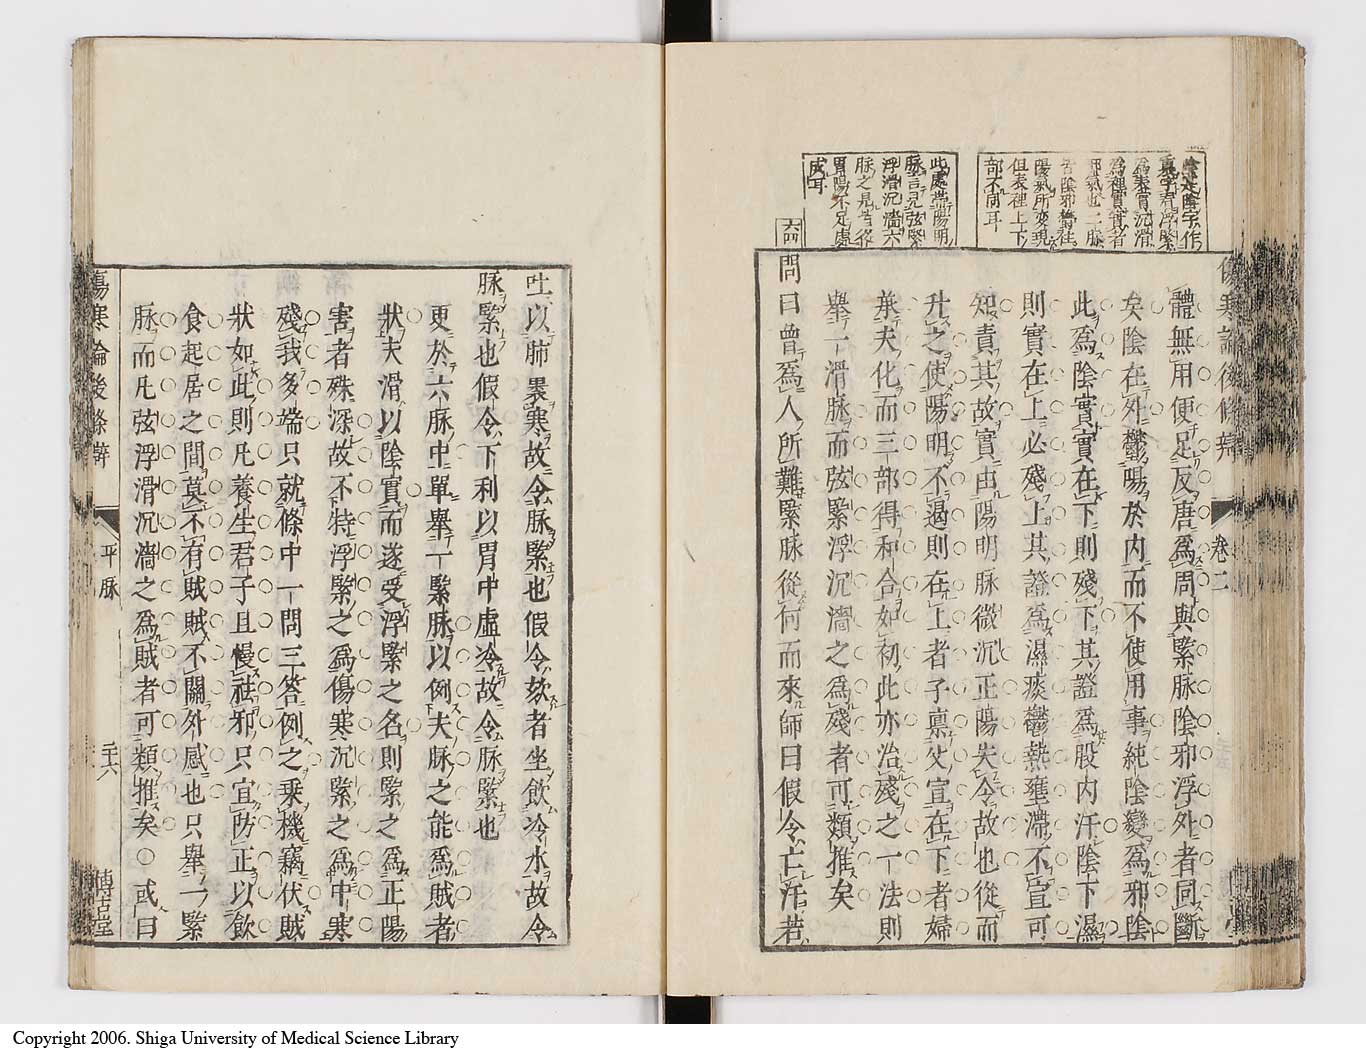 傷寒論後條辯
卷二
體無用便足反唐爲周與緊脉陰邪浮外者同斷
矣陰在外鬱陽於內而不使用事純陰變爲邪陰
此爲陰實實在下則殘下其證爲股內汗陰下濕
則實在上必殘上其證爲濕痰鬱熱壅滯不宣可
知責其故實由陽明脉微沉正陽失令故也從而
升之使陽明不遏則在上者子禀父宣在下者婦
承夫化而三部得和合如初此亦治殘之一法則
舉一滑脉而弦緊浮沉濇之爲殘者可類推矣
六四
問曰曾爲人所難緊脉從何而來師曰假令亡汗若
眞字看浮緊
爲表實沉滑
爲裡實實者
邪氣也二脉
皆陰邪鬱住
陽氣所變現
但表裡上下
部不同耳
此處帶陽明
脉言見弦緊
浮滑沉濇六
脉之見皆從
胃陽不足處
成耳
吐以肺裏寒故令脉緊也假令欬者坐飲冷水故令
脉緊也假令下利以胃中虛冷故令脉緊也
更於六脉中單舉一緊脉以例夫脉之能爲賊者
狀夫滑以陰實而遂受浮緊之名則緊之爲正陽
害者殊深故不特浮緊之爲傷寒沉緊之爲中寒
殘我多端只就條中一問三答例之乗機竊伏賊
狀如此則凡養生君子且慢祛邪只宜防正以飲
食起居之間莫不有賊賊不關外感也只舉一緊
脉而凡弦浮滑沉濇之爲賊者可類推矣○或曰
傷寒論後條辯
平脉
二十六
博古堂
Copyright 2006. Shiga University of Medical Science Library